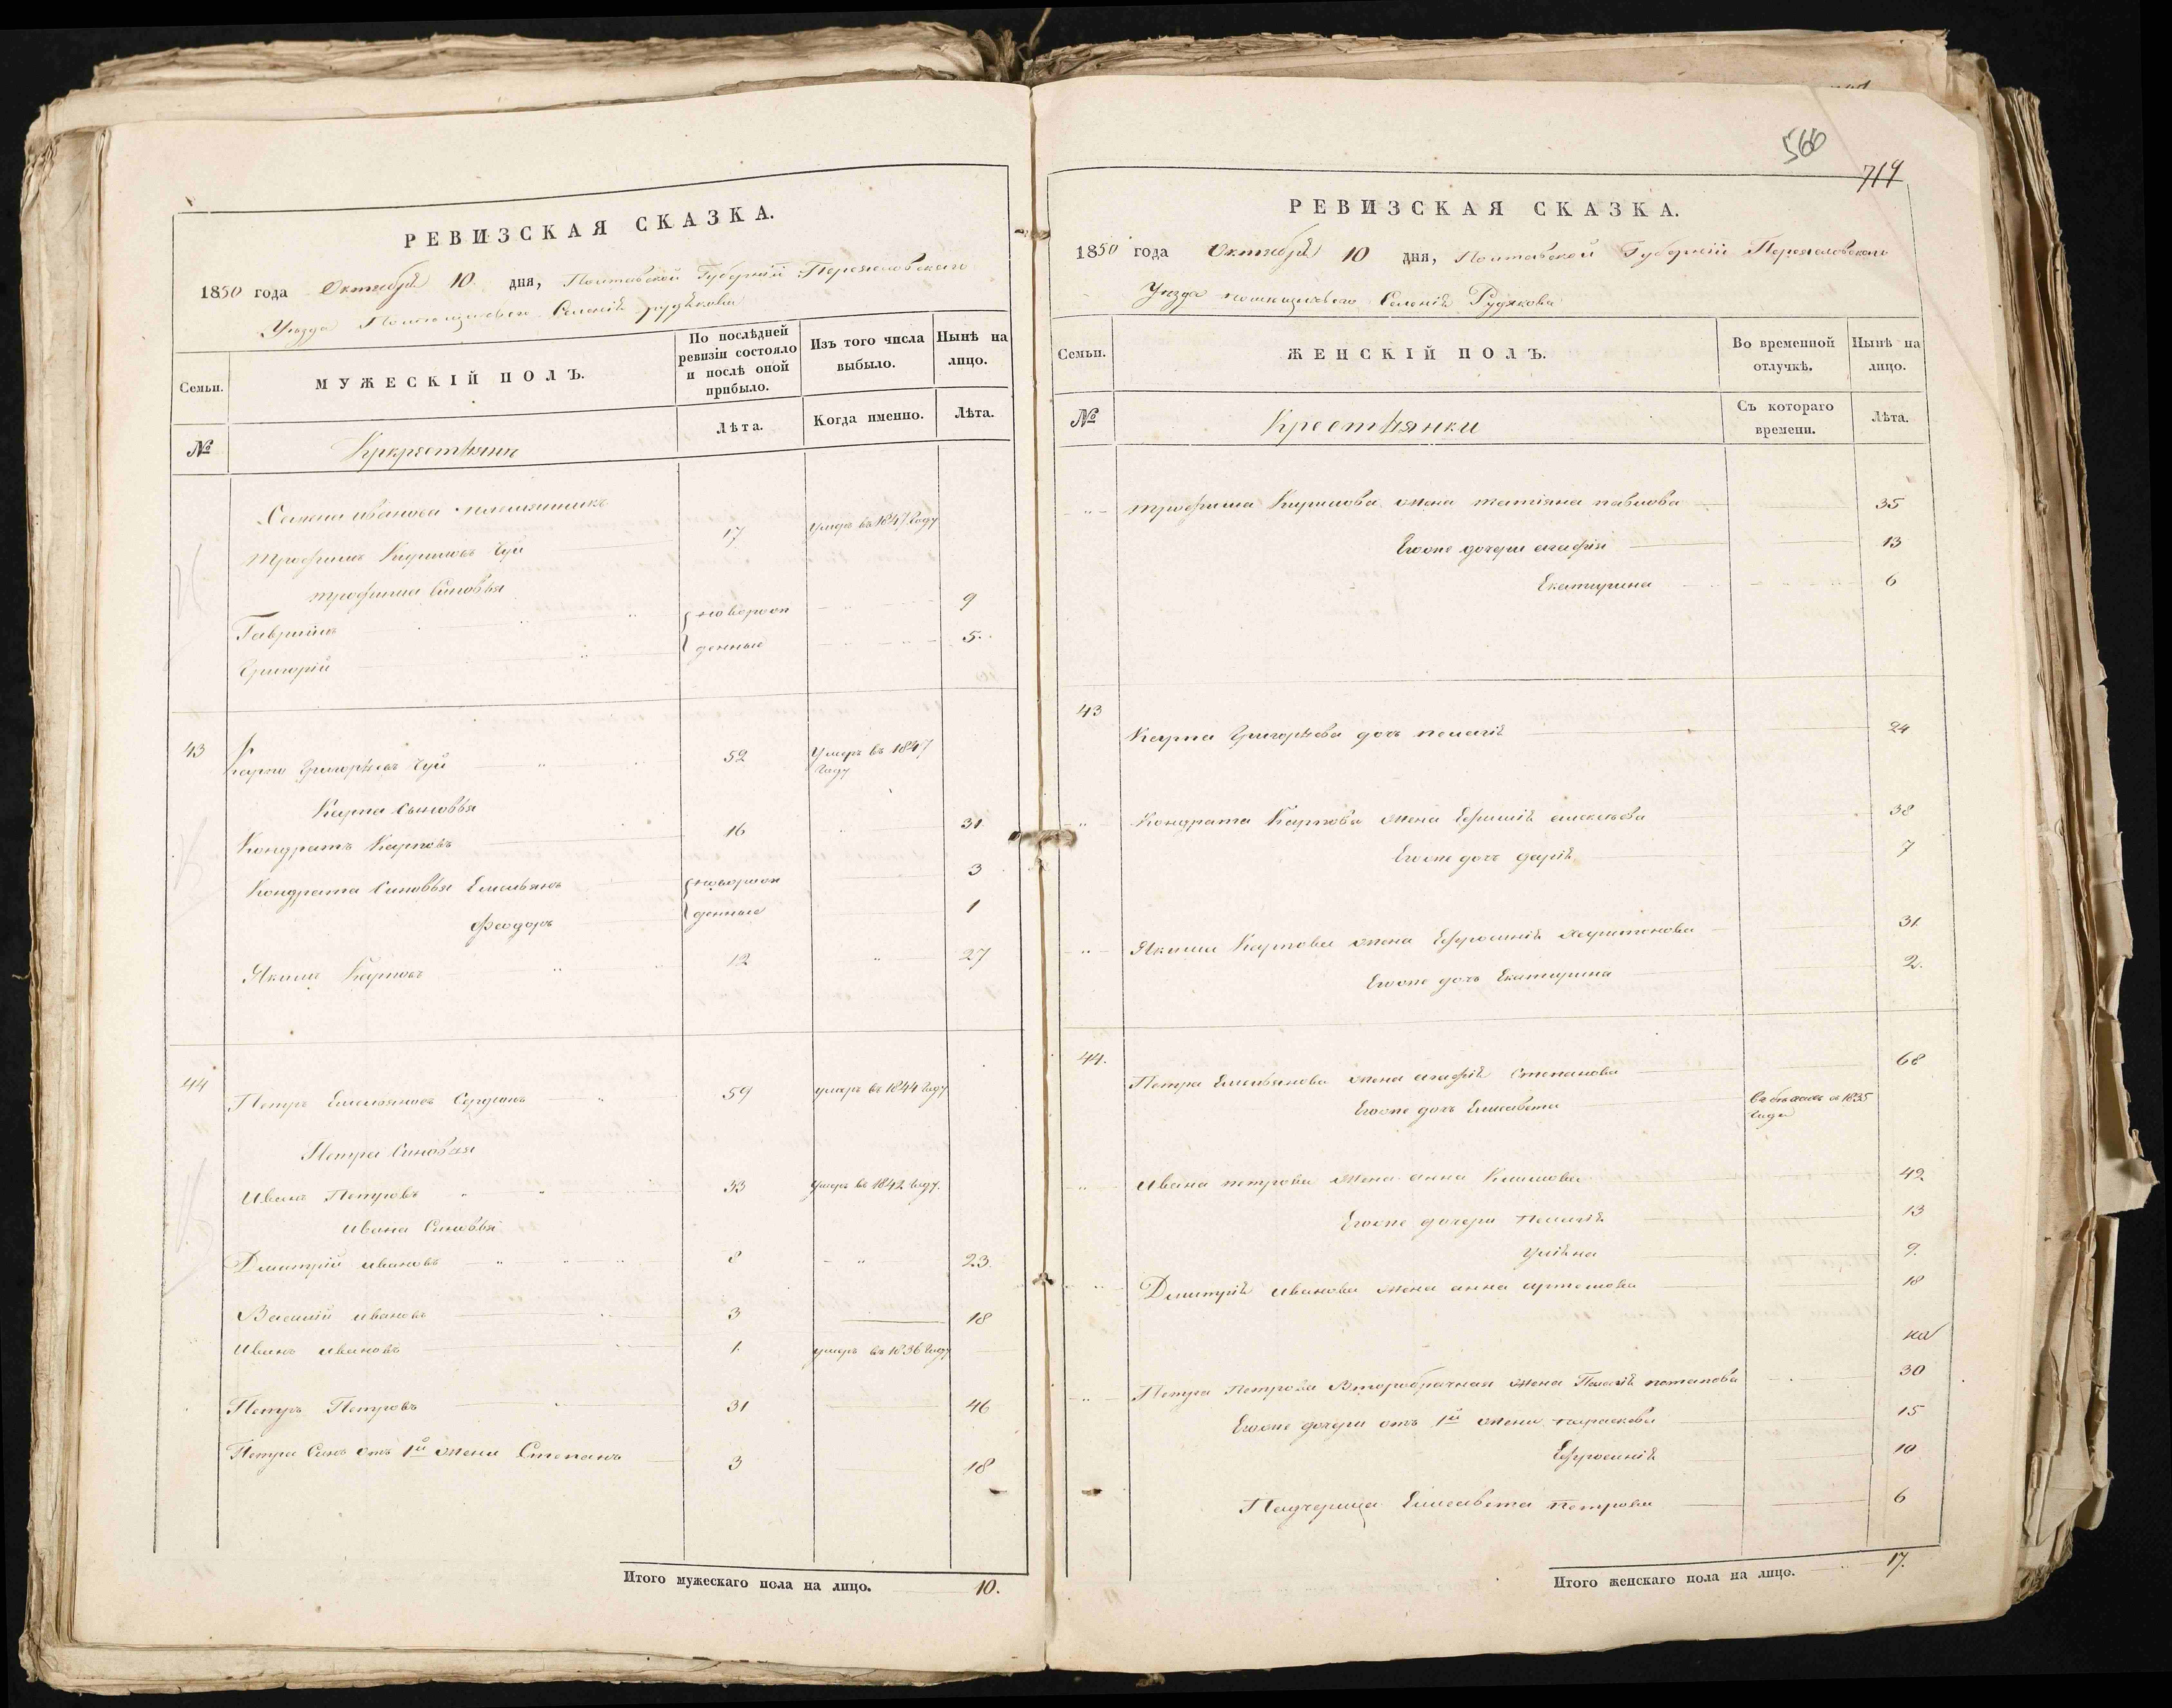 РЕВИЗСКАЯ СКАЗКА.
1850 года Октября 10 дня, Полтавской Губернiи Переяславскаго
Уезда Селенiя Рудякова
Семьи.
МУЖЕСКIЙ ПОЛЪ.
По послѣдней ревизiи состояло и послѣ оной прибыло.
Изъ того числа выбыло.
Нынѣ на лицо.
№
Лѣта.
Когда именно.
Лѣта.
Семена Иванова племянникъ
Трофимъ Кириловъ Чуй 17 умеръ въ 1847 году
Трофима Синовья
Гаврiилъ новорож 9
Григорiй денные 5
43 Карпо Григорьевъ Чуй 52 Умеръ въ 1847
году
Карпа Сыновья
Кондратъ Карповъ 16 31
Кондрата Синовья Емельянъ новорож 3
Феодоръ денные 1
Якимъ Карповъ 12 27
44 Петръ Емельяновъ 59 умеръ въ 1844 году
Петра Синовья
Иванъ Петровъ 33 умеръ въ 1842 году.
Ивана Синовья
Дмитрiй ивановъ 8 23.
Василiй ивановъ 3 18
Иванъ ивановъ 1. умеръ въ 1836 году
Петръ Петровъ 31 46
Петра Синъ отъ 1й жени Степанъ 3 18
Итого мужескаго пола на лицо. 10.
566
719
РЕВИЗСКАЯ СКАЗКА.
1850 года Октября 10 дня, Полтавской Губернiи Переяславскаго
Уезда Селенiя Рудякова
Семьи.
ЖЕНСКIЙ ПОЛЪ.
Во временной отлучкѣ.
Нынѣ на лицо.
№
Крестьянки
Съ котораго времени.
Лѣта.
трофима Кирилова жена татiяна павлова 35
Егоже дочери агафiя 13
Екатирина 6
43
Карпа Григорьева дочь пелагiя 24
Кондрата Карпова жена Ефимiя алексеева 38
Егоже дочь дарiя 7
Якима Карпова жена Ефросинiя Харитонова 31.
Егоже дочь Екатирина 2.
44. Петра Емельянова жена агафiя Степанова 68
Егоже дочь Елисавета въ бегахъ с 1835
года
Ивана петрова жена анна Климова 42.
Егоже дочери Пелагiя 13
Улiяна 9.
Дмитрiя Иванова жена анна артемова 18
Петра Петрова Второбрачная жена Пелагiя потапова 30
Егоже дочери отъ 1й жени параскева 15
Ефросинiя 10
Падчерица Елисавета Петрова 6
Итого женскаго пола на лицо. 17.